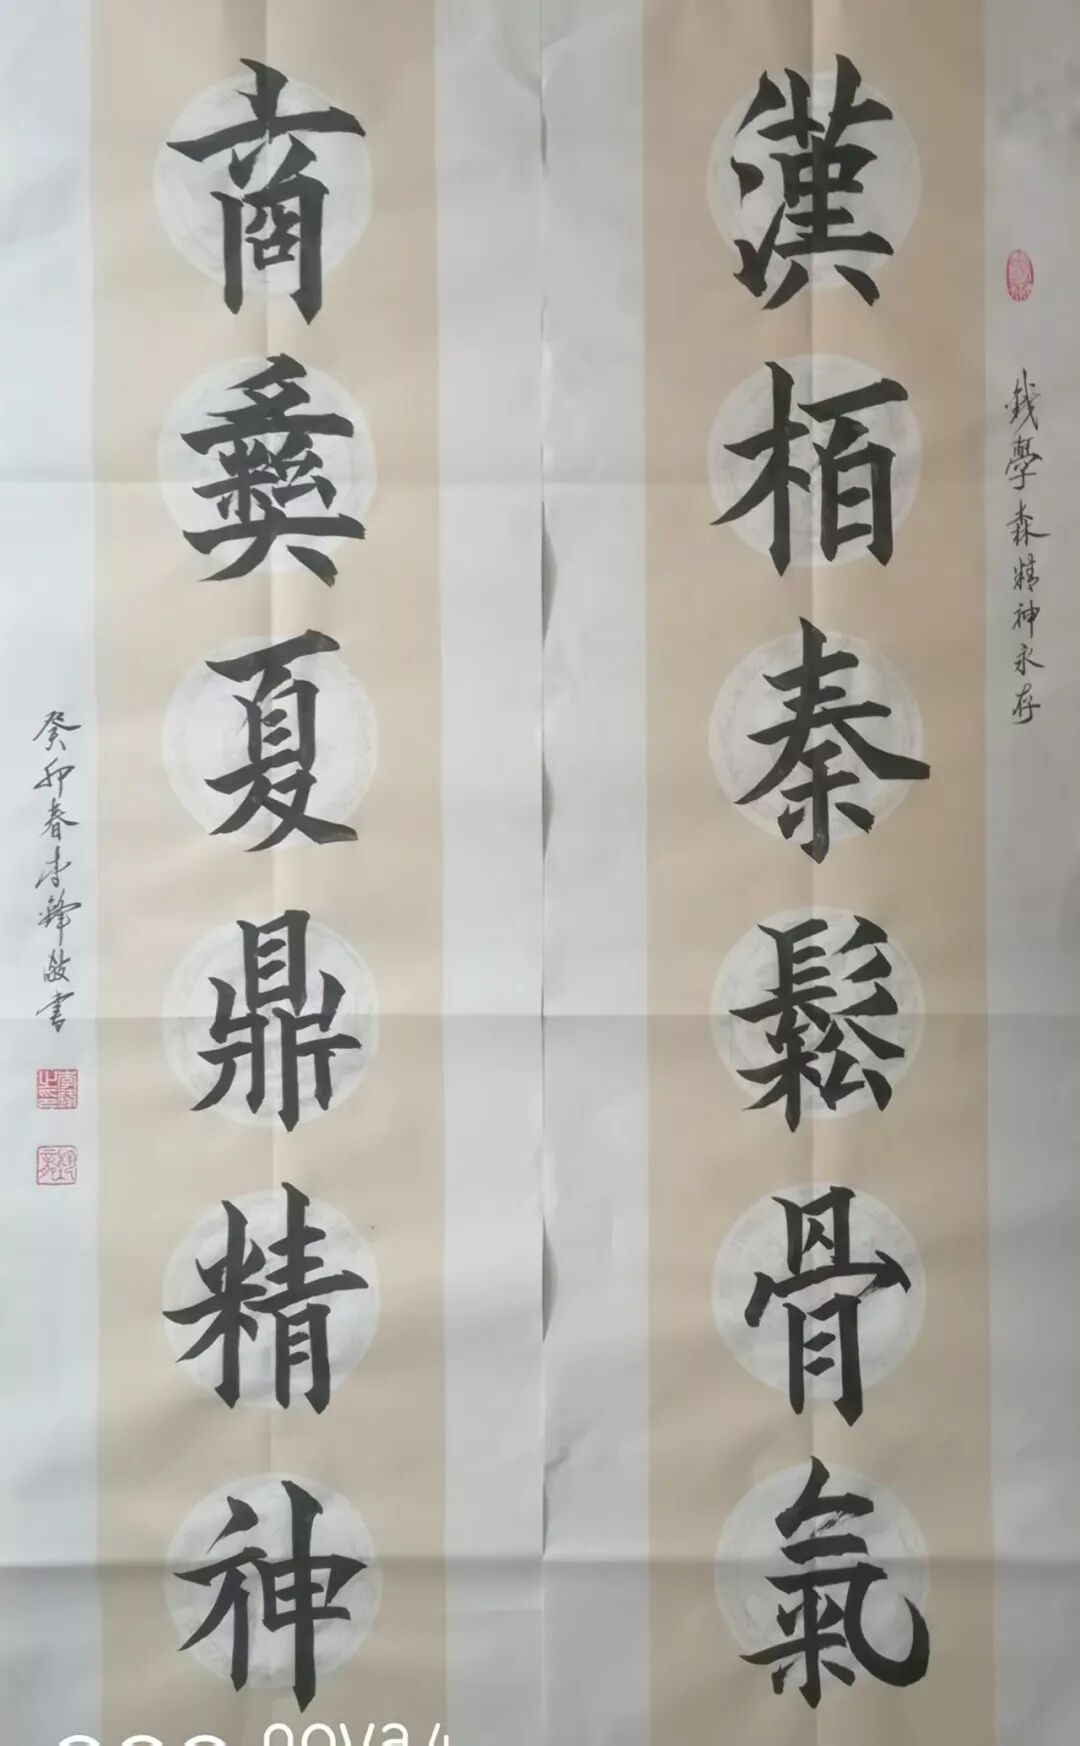 錢學森精神永存
漢栢秦鬆骨氣
商彝夏鼎精神
癸卯春李鋒敬書
nova 4